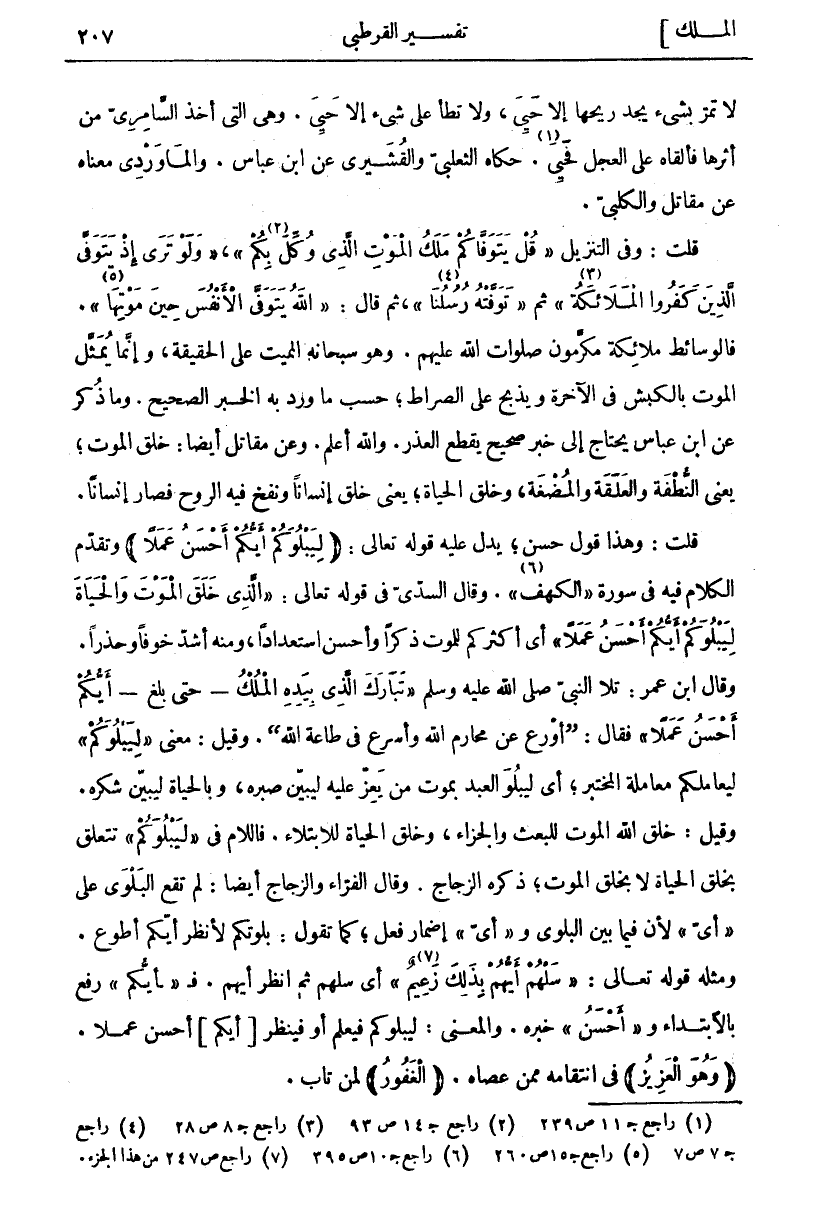 الملك ] تفسير القرطبى ٢٠٧
لا تمرّ بشىء يجد ريحها إلا حَيِىَ ، ولا تطأ على شىء إلا حَيِىَ . وهى التى أخذ السَّامِرِىّ من
أثرها فألقاه على العجل فَحَيِىَ (١) . حكاه الثعلبىّ والقُشَيرى عن ابن عباس . والمَاوَرْدِى معناه
عن مقاتل والكلبىّ .
قلت : وفى التنزيل « قُلْ يَتَوَفَّاكُمْ مَلَكُ الْمَوْتِ الَّذِى وُكِّلَ بِكُمْ (٢) »،« وَلَوْ تَرَى إِذْ يَتَوَفَّى
الَّذِينَ كَفَرُوا الْمَلَائِكَةُ (٣) » ثم « تَوَفَّتْهُ رُسُلُنَا (٤) »،ثم قال : « اللهُ يَتَوَفَّى الْأَنْفُسَ حِينَ مَوْتِهَا (٥) ».
فالوسائط ملائكة مكرّمون صلوات الله عليهم . وهو سبحانه المميت على الحقيقة، وإنَّما يُمَثَّل
الموت بالكبش فى الآخرة ويذبح على الصراط؛ حسب ما ورد به الخبر الصحيح . وما ذُكر
عن ابن عباس يحتاج إلى خبر صحيح يقطع العذر. والله أعلم. وعن مقاتل أيضا: خلق الموت؛
يعنى النُّطْفَة والعَلَقَة والمُضْغَة، وخلق الحياة؛ يعنى خلق إنساناً ونفخ فيه الروح فصار إنسانًا.
قلت : وهذا قول حسن؛ يدل عليه قوله تعالى : ﴿ لِيَبْلُوَكُمْ أَيُّكُمْ أَحْسَنُ عَمَلًا ﴾ وتقدّم
الكلام فيه فى سورة «الكهف (٦)» . وقال السدّىّ فى قوله تعالى : «الَّذِى خَلَقَ الْمَوْتَ وَالْحَيَاةَ
لِيَبْلُوَكُمْ أَيُّكُمْ أَحْسَنُ عَمَلًا» أى أكثركم للموت ذكرًا وأحسن استعدادًا،ومنه أشدّ خوفاً وحذراً.
وقال ابن عمر : تلا النبىّ صلى الله عليه وسلم «تَبَارَكَ الَّذِى بِيَدِهِ الْمُلْكُ – حتى بلغ – أَيُّكُمْ
أَحْسَنُ عَمَلًا» فقال : ”أوْرع عن محارم الله وأسرع فى طاعة الله“ . وقيل : معنى «لِيَبْلُوَكُمْ»
ليعاملكم معاملة المختبر؛ أى ليبلُوَ العبد بموت من يَعِزّ عليه ليبيّن صبره، وبالحياة ليبيّن شكره.
وقيل : خلق الله الموت للبعث والجزاء ، وخلق الحياة للابتلاء . فاللام فى «لِيَبْلُوَكُمْ» تتعلق
بخلق الحياة لا بخلق الموت؛ ذكره الزجاج . وقال الفرّاء والزجاج أيضا : لم تقع البَلْوَى على
« أىّ » لأن فيما بين البلوى و « أىّ » إضمار فعل ؛ كما تقول : بلوتكم لأنظر أيّكم أطوع .
ومثله قوله تعالى : « سَلْهُمْ أَيُّهُمْ بِذَلِكَ زَعِيمٌ (٧) » أى سلهم ثم انظر أيهم . فـ « ـأيُّكم » رفع
بالآبتداء و « أَحْسَنُ » خبره . والمعنى : ليبلوكم فيعلم أو فينظر [ أيكم ] أحسن عملا .
﴿ وَهُوَ الْعَزِيزُ ﴾ فى انتقامه ممن عصاه . ﴿ الْغَفُورُ ﴾ لمن تاب .
(١) راجع ج ١١ ص ٢٣٩ (٢) راجع ج ١٤ ص ٩٣ (٣) راجع ج ٨ ص ٢٨ (٤) راجع
ج ٧ ص ٧ (٥) راجع ج ١٥ ص ٢٦٠ (٦) راجع ج ١٠ ص ٣٩٥ (٧) راجع ص ٢٤٧ من هذا الجزء .